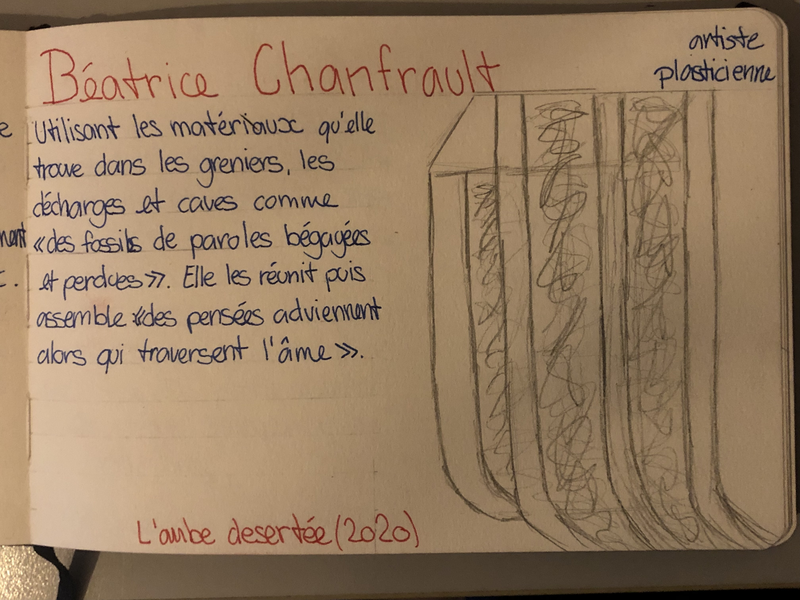 Béatrice Chanfrault
artiste
plasticienne
e
Utilisant les matériaux qu'elle
trouve dans les greniers, les
décharges et caves comme
« des fossils de paroles bégayées
et perdues ». Elle les réunit puis
assemble « des pensées adviennent
alors qui traversent l'âme ».
L'aube desertée (2020)